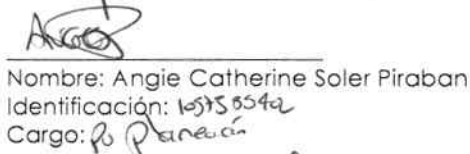 Nombre: Angie Catherine Soler Piraban
Identificación:
Cargo: Planeación